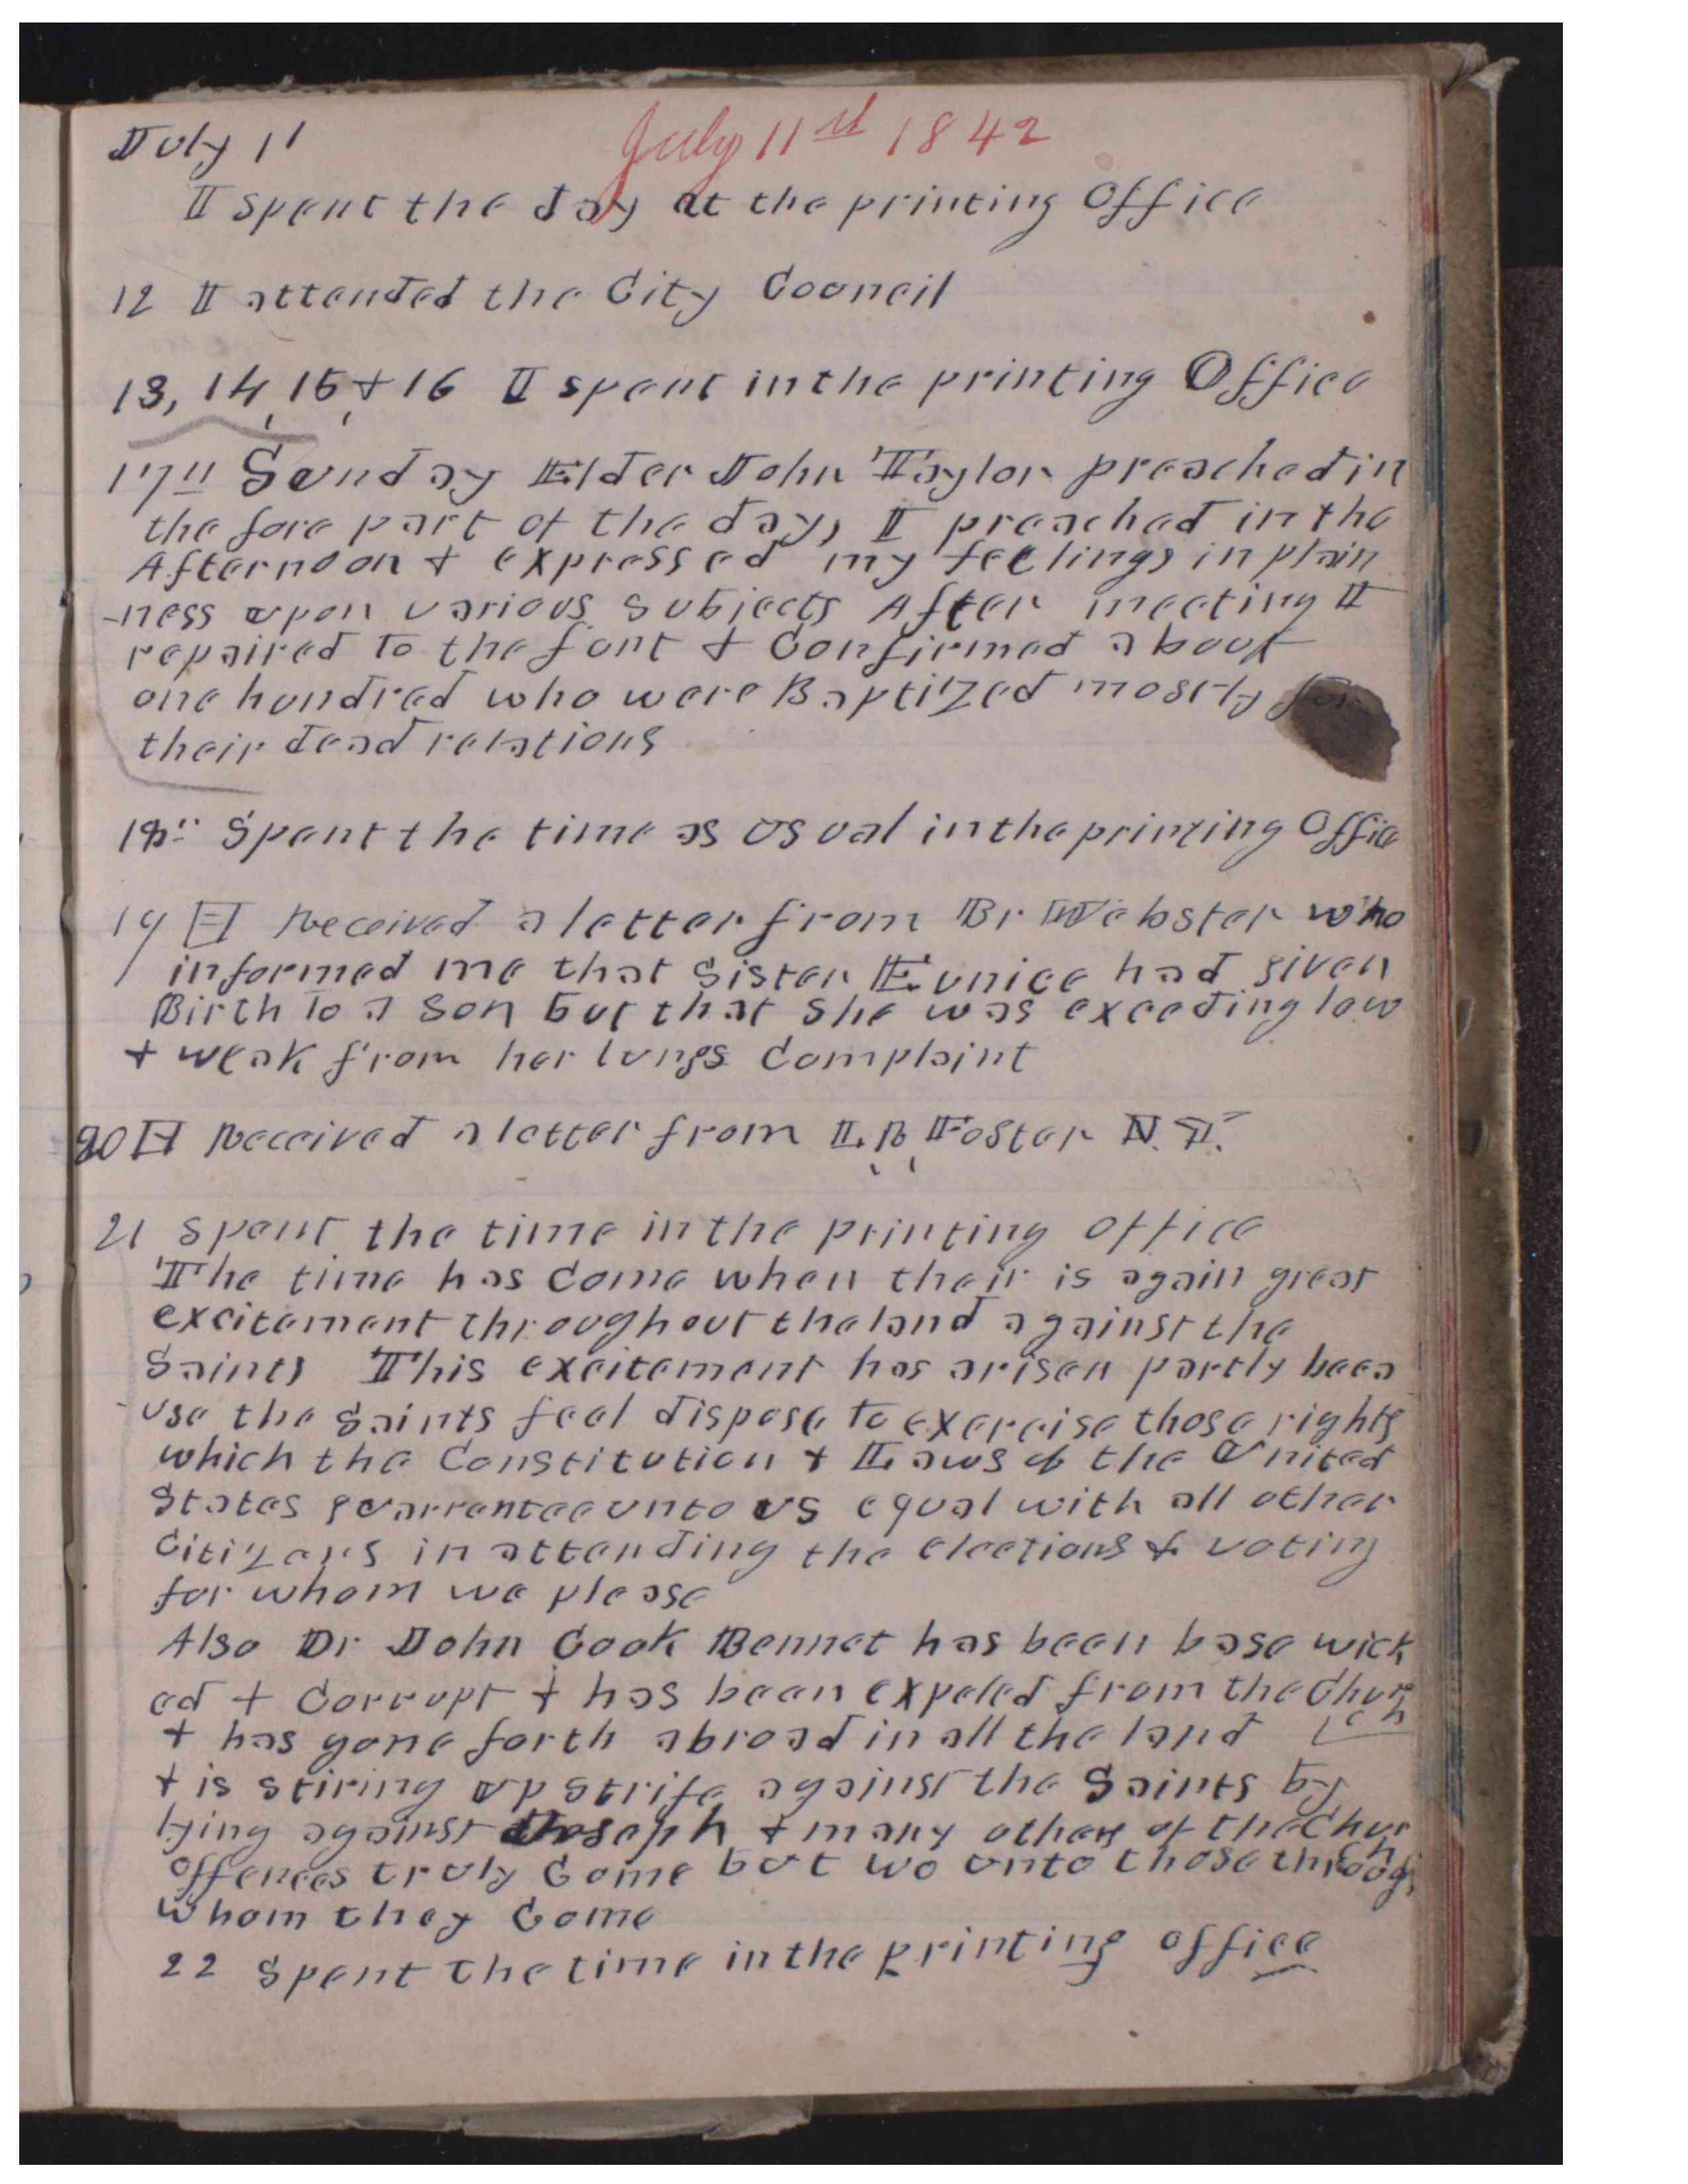 July 11 July 11st 1842
I spent the day at the printing Office
12 I attended the City Council
13, 14, 15, & 16 I spent in the printing Office
17" Sunday Elder John Taylor preached in
the fore part of the day, I preached in the
Afternoon & expressed my feelings in plain
-ness upon various subjects After meeting I
repaired to the font & Confirmed about
one hundred who were Baptized mostly for
their dead relations
18" Spent the time as usual in the printing Office
19 I Received a letter from Br Webster who
informed me that Sister Eunice had given
Birth to a son but that she was exceeding low
& weak from her lungs Complaint
20 I Received a letter from L, R, Foster N. Y.
21 spent the time in the printing office
The time has Come when their is again great
excitement throughout the land against the
Saints This excitement has arisen partly beca
-use the Saints feel dispose to exercise those rights
which the Constitution & Laws of the United
States guarrentee unto us equal with all other
Citizens in attending the elections & voting
for whom we please
Also Dr John Cook Bennet has been base wick
ed & Corrupt & has been expeled from the Chur
& has gone forth abroad in all the land ch
& is stiring up strife against the Saints by
lying against Joseph & many others of the Chur
offences truly Come but wo unto those through ch
whom they Come
22 Spent the time in the printing office